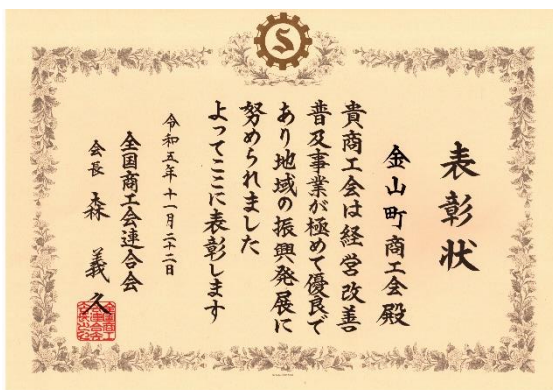 表彰状
金山町商工会殿
貴商工会は経営改善
普及事業が極めて優良で
あり地域の振興発展に
努められました
よってここに表彰します
令和五年十一月二十二日
全国商工会連合会
会長 森 義久